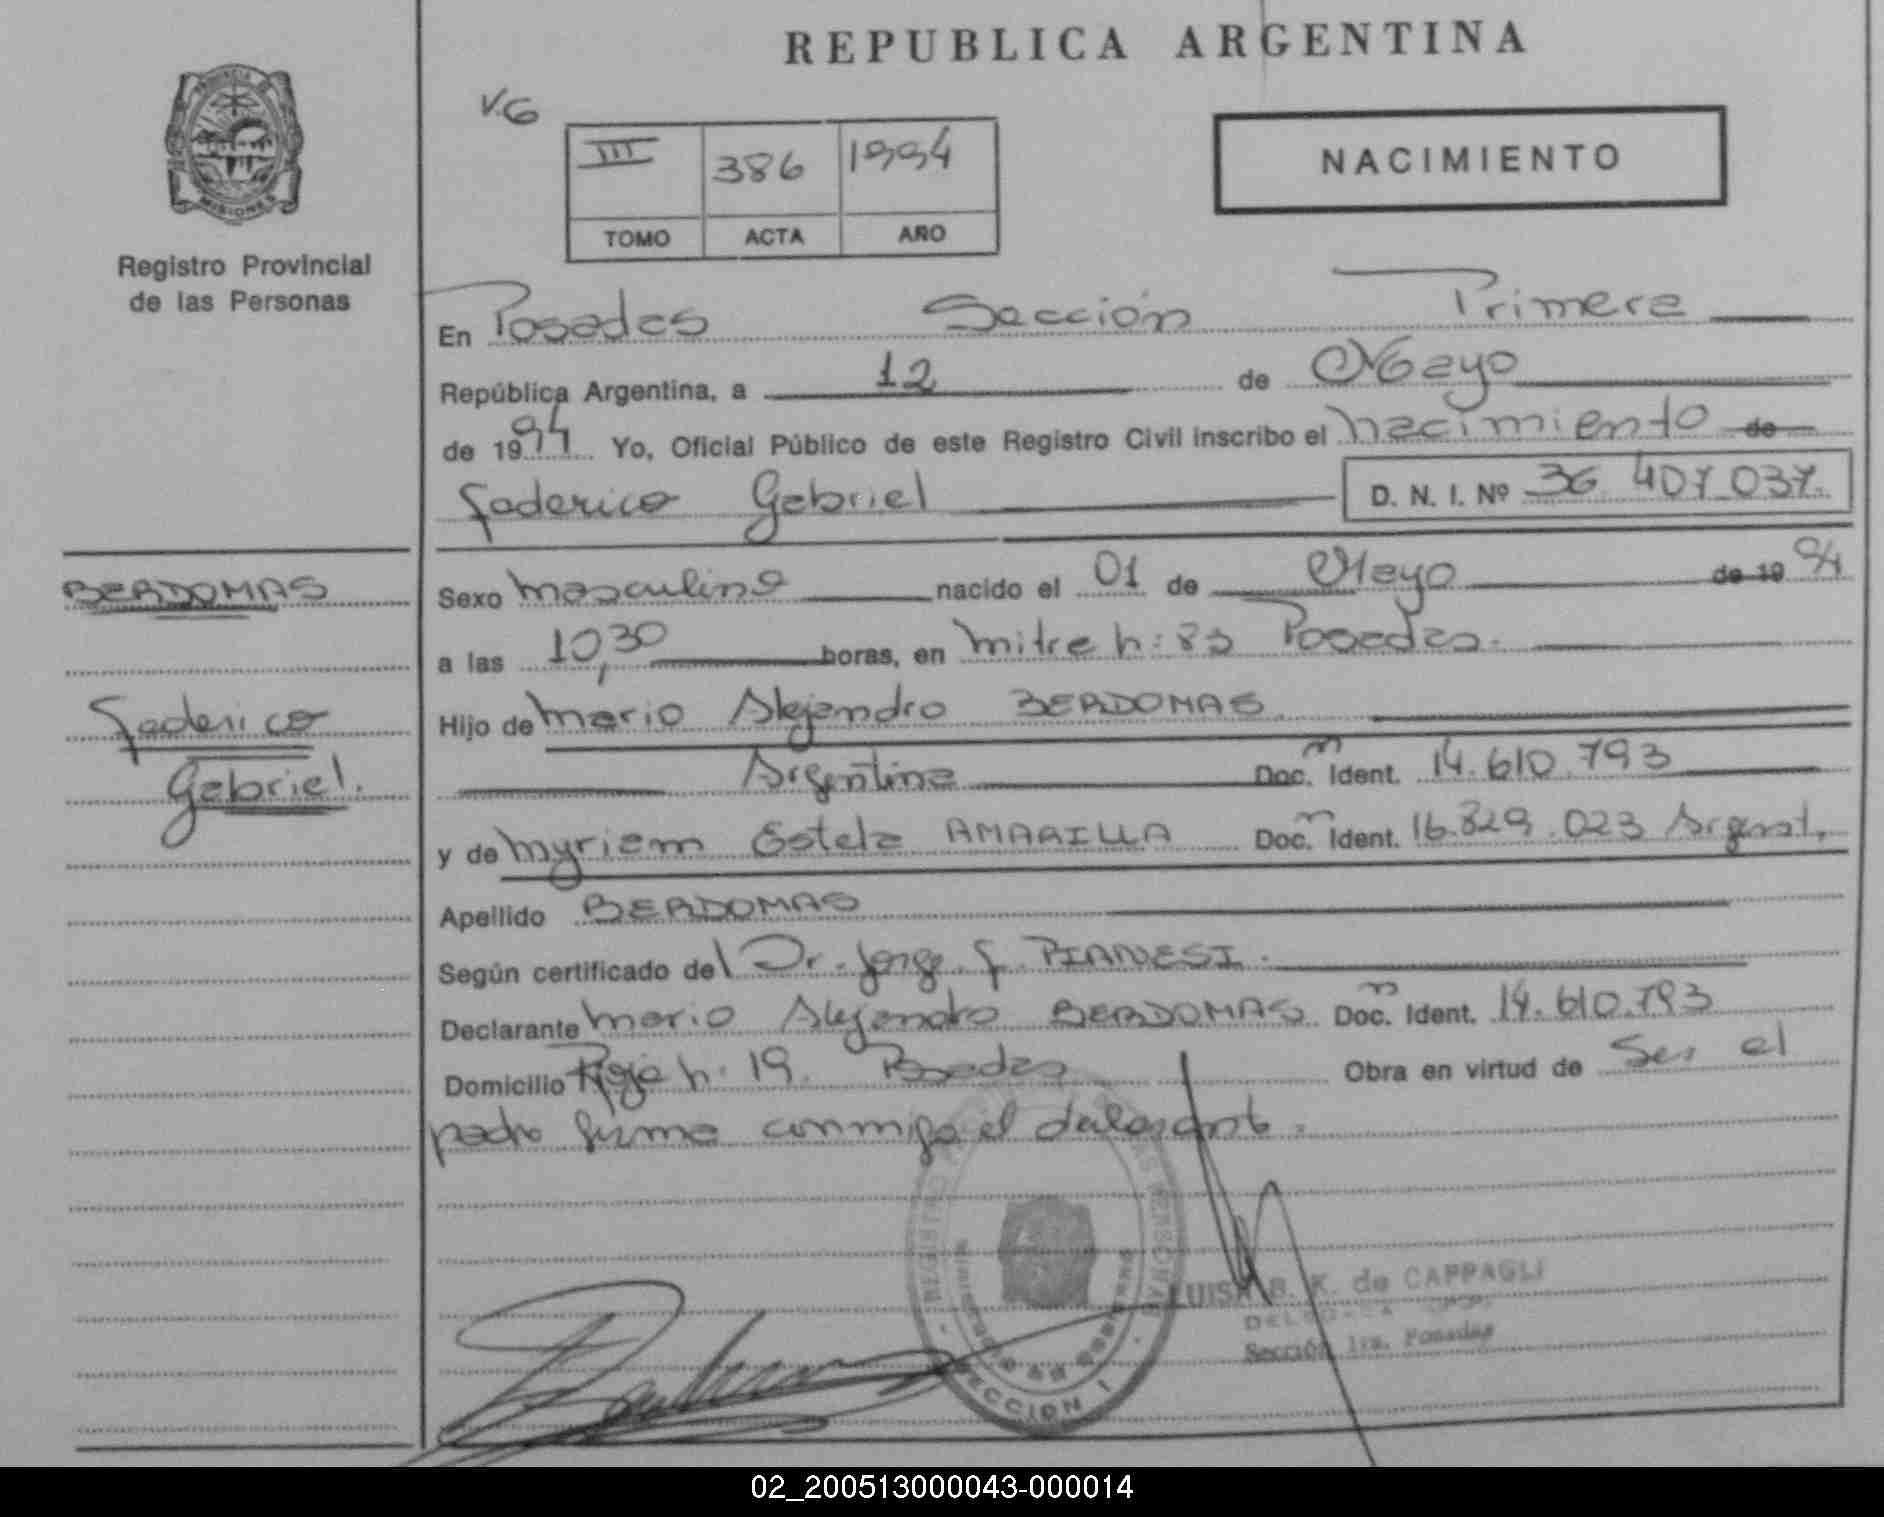 REPUBLICA ARGENTINA
V.G
III 386 1994
TOMO ACTA AÑO
NACIMIENTO
MISIONES
Registro Provincial
de las Personas
En Posadas Sección Primera
República Argentina, a 12 de Mayo
de 1994 Yo, Oficial Público de este Registro Civil inscribo el nacimiento de
Federico Gabriel D. N. I. Nº 36.407.037.
BERDOMAS
Federico
Gabriel.
Sexo masculino nacido el 01 de Mayo de 1994
a las 10,30 horas, en mitre n: 83 Posadas.
Hijo de mario Alejandro BERDOMAS
Argentina Doc. Ident. 14.610.793
y de myriam Estela AMARILLA Doc. Ident. 16.829.023 Argent.
Apellido BERDOMAS
Según certificado del Dr. Jorge F. PIANESI.
Declarante mario Alejandro BERDOMAS Doc. Ident. 14.610.793
Domicilio n: 19. Posadas Obra en virtud de Ser el
padre firma conmigo el declarante.
LUISA B. K. de CAPPAGLI
Sección 1ra. Posadas
SECCION 1
02_200513000043-000014